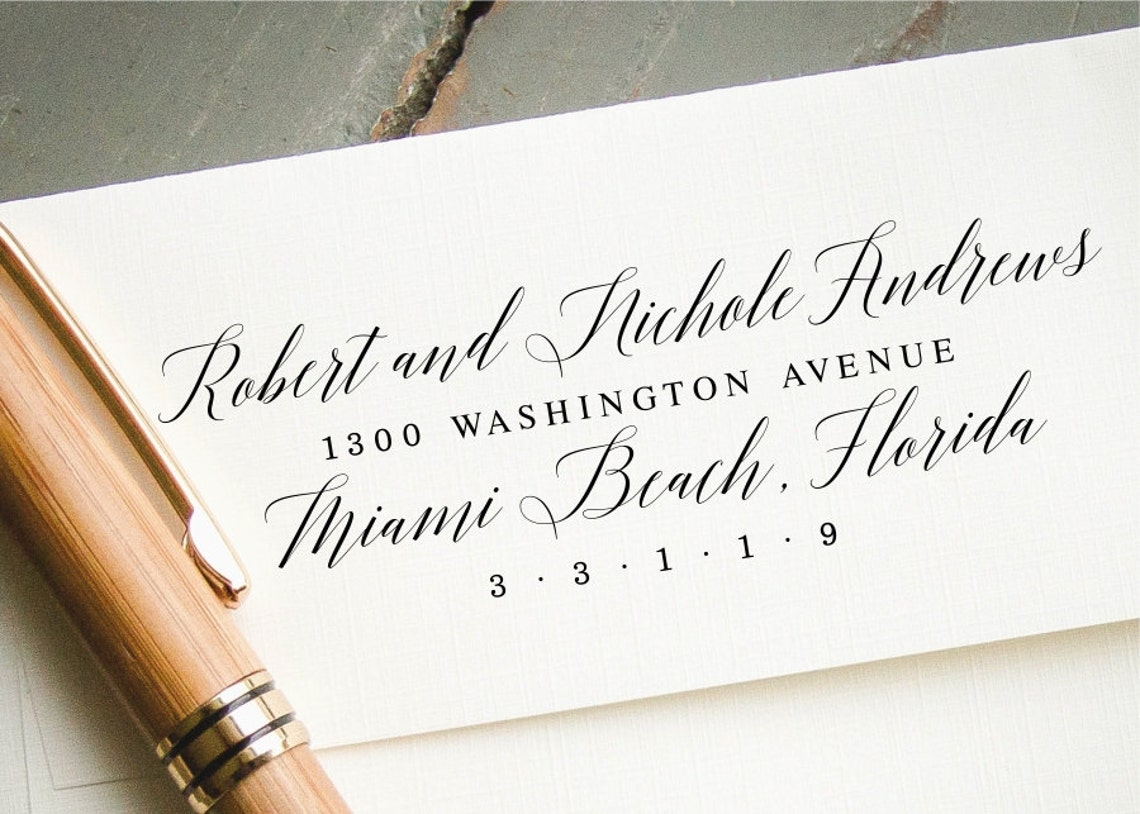 Robert and Nichole Andrews
1300 WASHINGTON AVENUE
Miami Beach, Florida
3 · 3 · 1 · 1 · 9